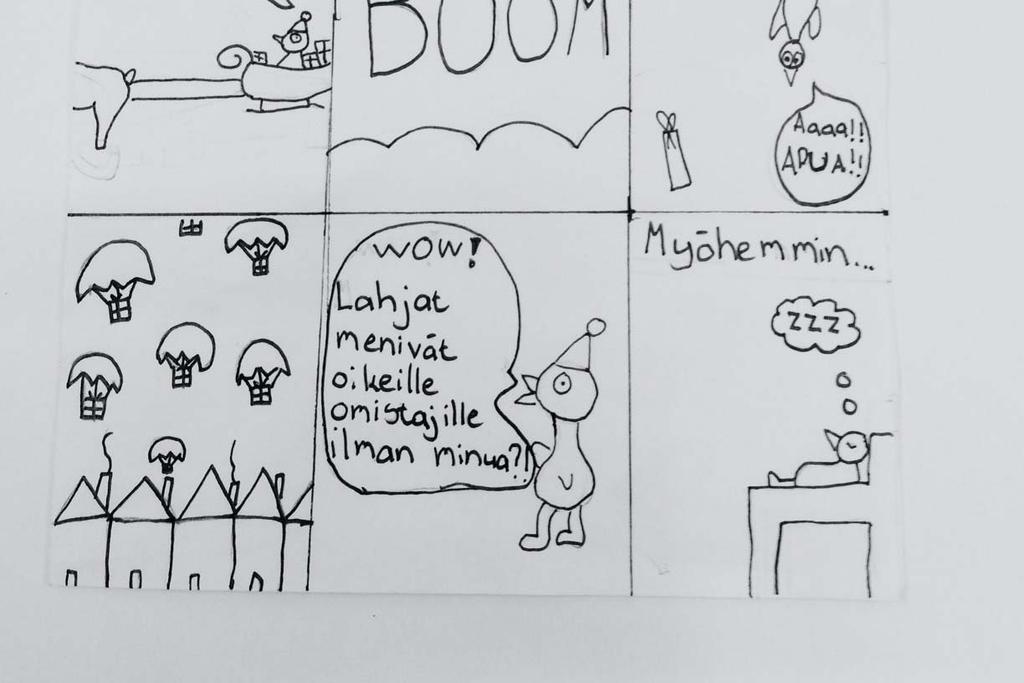 BOOM
Aaaa!!
APUA!!
WOW!
Lahjat
menivät
oikeille
omistajille
ilman minua?!
Myöhemmin...
ZZZ